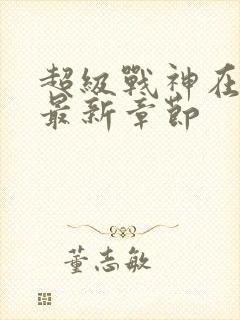 超級戰神在
最新章節
董志敏